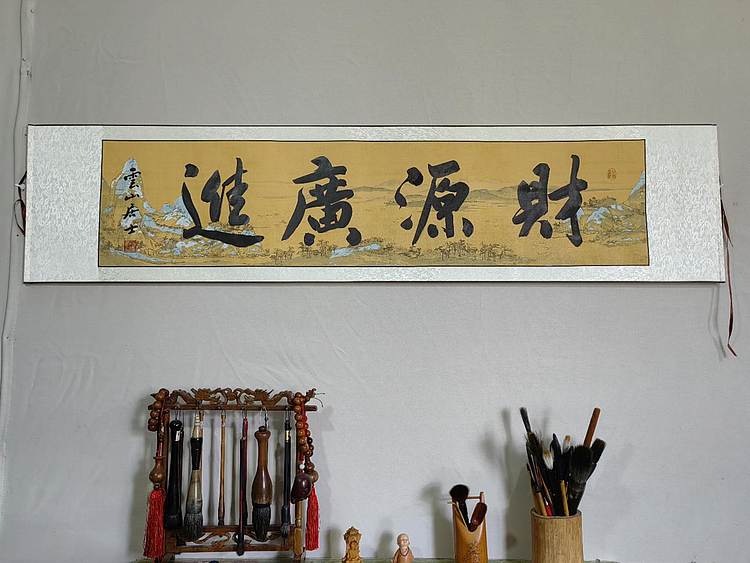 財源廣進
雲山居士